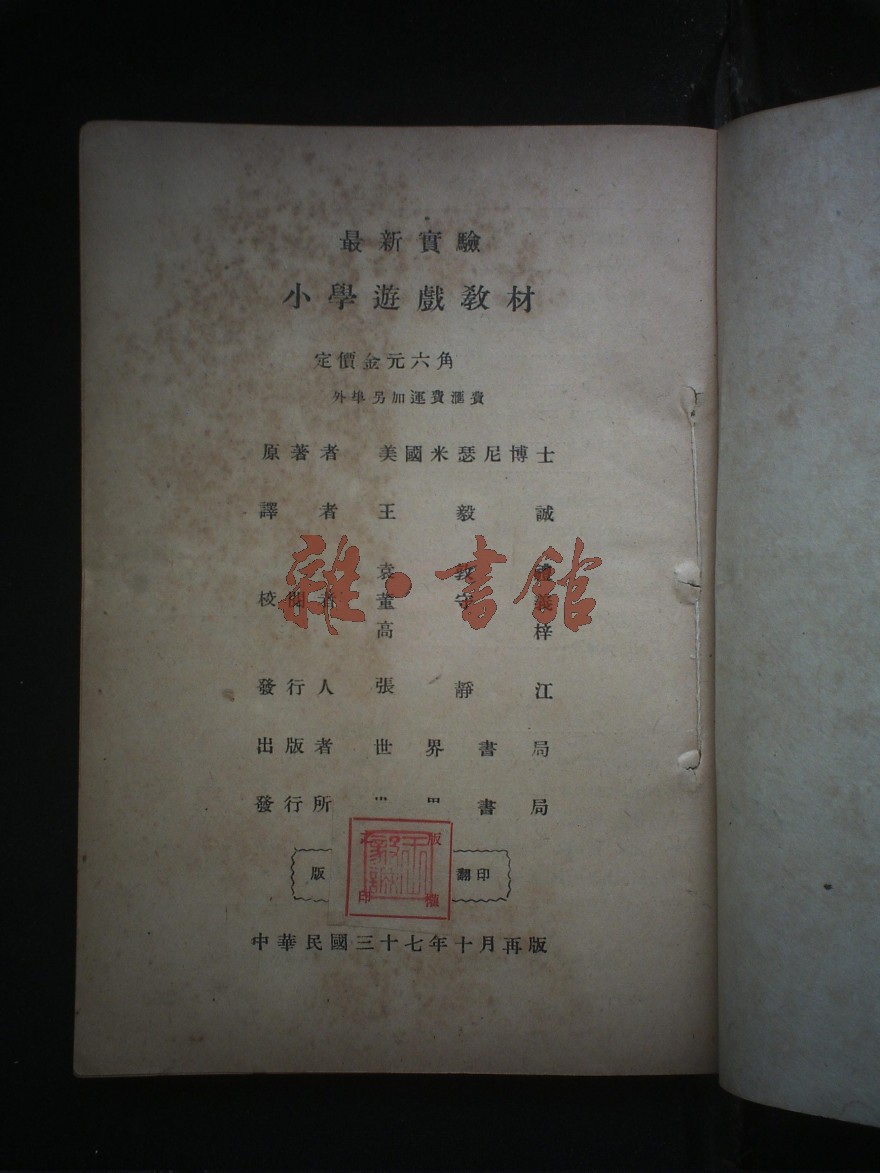 最新實驗
小學遊戲敎材
定價金元六角
外埠另加運費滙費
原著者 美國米瑟尼博士
譯者 王毅誠
袁敦禮
校閱者 董守義
高梓
雜·書館
發行人 張靜江
出版者 世界書局
發行所 書局
版 翻印
版權印
中華民國三十七年十月再版